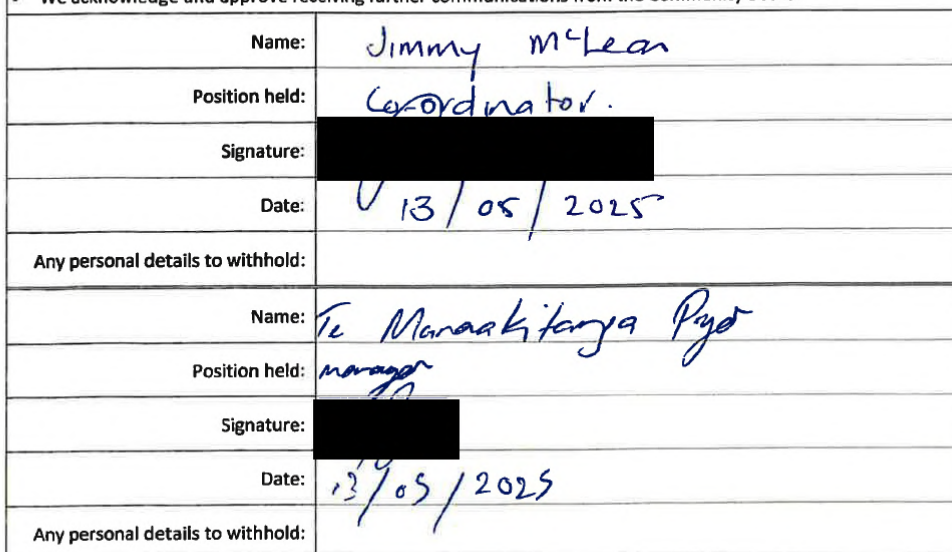 We acknowledge and approve receiving further communications from the Community
Name: Jimmy McLean
Position held: Co-ordinator.
Signature:
Date: 13/05/2025
Any personal details to withhold:
Name: Te Manaakitanga
Position held: manager
Signature:
Date: 13/05/2025
Any personal details to withhold: